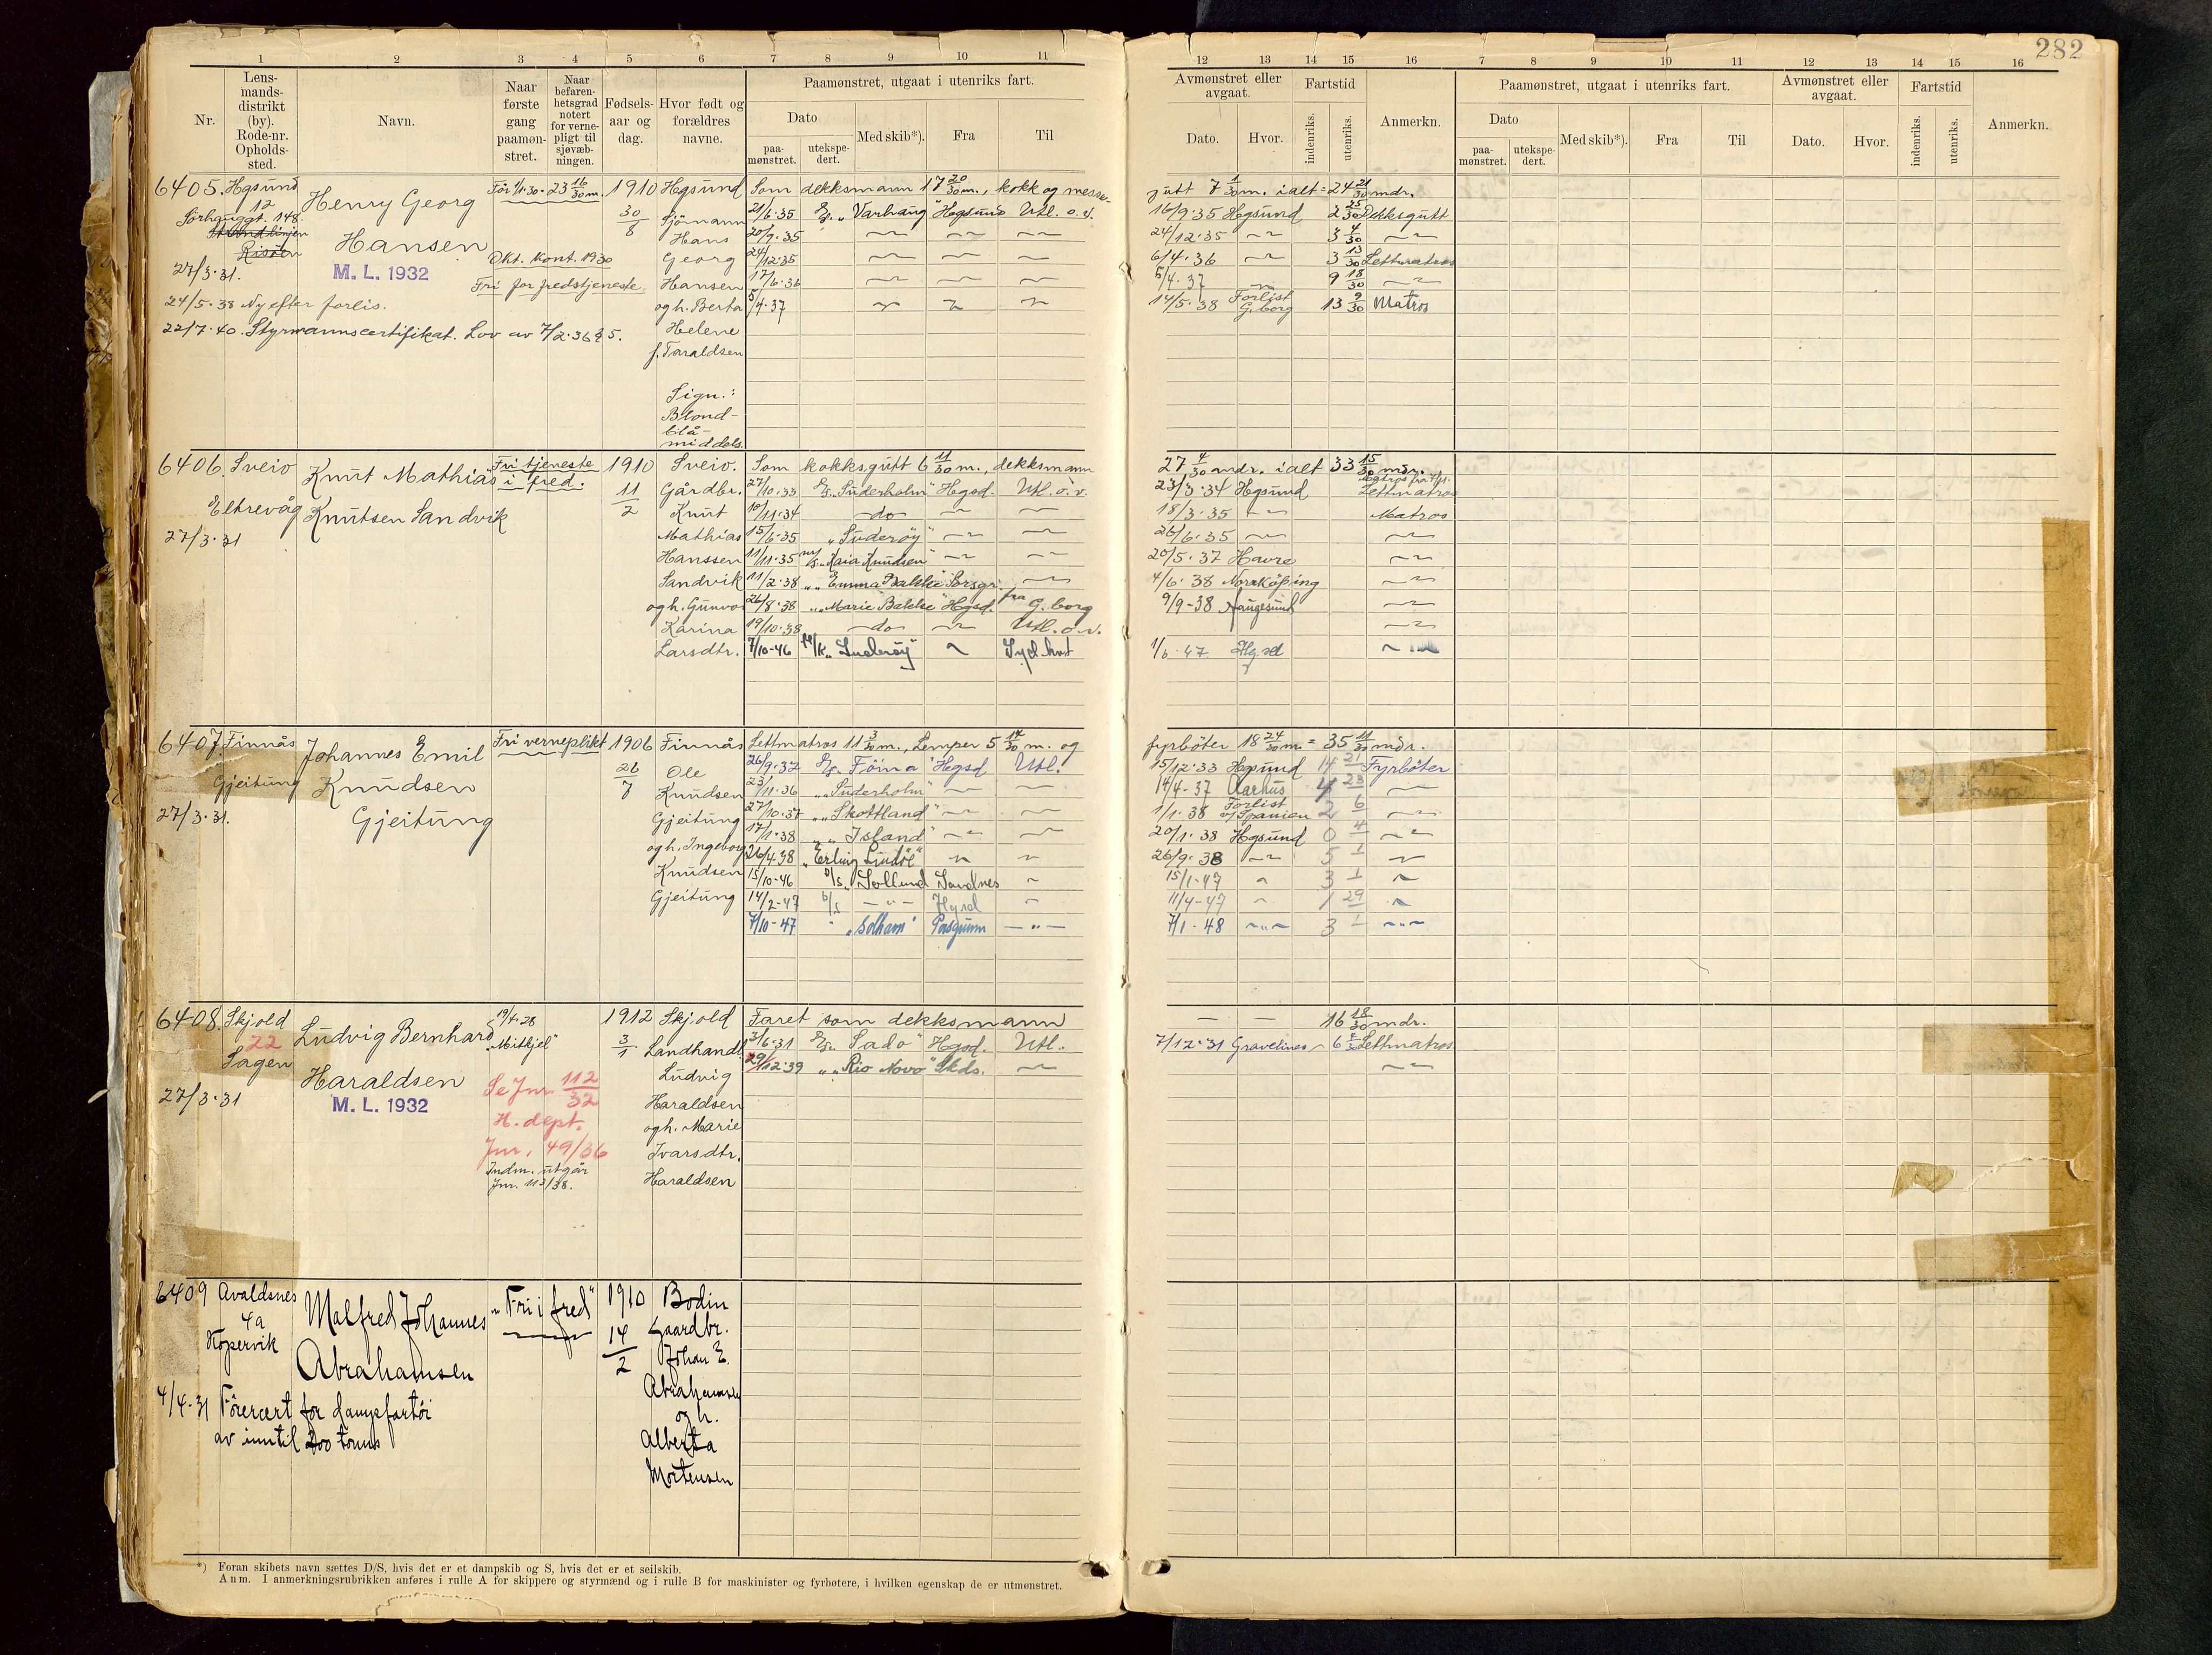 282
1 2 3 4 5 6 7 8 9 10 11
Nr.
Lensmandsdistrikt (by). Rode-nr. Opholds-sted.
Navn.
Naar første gang paamøn-stret.
Naar befaren-hetsgrad notert for verne-pligt til sjøvæb-ningen.
Fødsels-aar og dag.
Hvor født og forældres navne.
Paamønstret, utgaat i utenriks fart.
Dato
paa-mønstret.
utekspe-dert.
Med skib*).
Fra
Til
12 13 14 15 16 7 8 9 10 11 12 13 14 15 16
Avmønstret eller avgaat.
Dato. Hvor.
Fartstid
indenriks. utenriks.
Anmerkn.
Paamønstret, utgaat i utenriks fart.
Dato
paa-mønstret. utekspe-dert.
Med skib*). Fra Til
Avmønstret eller avgaat.
Dato. Hvor.
Fartstid
indenriks. utenriks.
Anmerkn.
6405. Hgsund
12
Sørhauggt. 148.
Risøen
27/3.31.
Henry Georg
Hansen
M. L. 1932
Før 1/1.30. 23 16/30 m.
Okt. kont. 1930
Fri for fredstjeneste.
24/5.38 Ny efter forlis.
22/7.40. Styrmannscertifikat. Lov av 7/2.36 § 5.
1910
30/8
Hgsund
Sjömann
Hans
Georg
Hansen
og h. Berta
Helene
f. Taraldsen
Sign.:
Blond-
blå-
middels.
Som dekksmann 17 20/30 m., kokk og messe-
jutt 7 1/30 m. ialt = 24 21/30 mdr.
21/6.35 D/s. "Varhaug" Hgsund Utl. o.v. 16/9.35 Hgsund 2 25/30 Dekksgutt
20/9.35 — — — 24/12.35 — 3 4/30 —
24/12.35 — — — 6/4.36 — 3 13/30 Lettmatros
17/6.36 — — — 5/4.37 — 9 18/30 —
5/4.37 — — — 14/5.38 Forlist G.borg 13 9/30 Matros
6406. Sveio
Eltrevåg
27/3.31
Knut Mathias
Knutsen Sandvik
Fri tjeneste
i fred.
1910
11/2
Sveio.
Gårdbr.
Knut
Mathias
Hanssen
Sandvik
og h. Gunvor
Karina
Larsdtr.
Som kokksgutt 6 11/30 m., dekksmann
27 4/30 mdr. ialt 33 15/30 mdr.
27/10.33 D/s. "Suderholm" Hgsd. Utl. o.v. 23/3.34 Hgsund Lettmatros
10/11.34 — do — — — 18/3.35 — Matros
15/6.35 "Suderöy" — — 26/6.35 — —
11/11.35 "Kaia Knudsen" — — 20/5.37 Havre —
11/2.38 " "Emma Bakke" Porsgr. — 4/6.38 Norrköping —
26/8.38 " "Marie Bakke" Hgsd. fra G.borg 9/9-38 Haugesund —
19/10.38 — do — — Utl. o.v. —
7/10-46 fl/k. "Suderöy" — Syd.hvt 1/6-47 Hgsd —
6407. Finnås
Gjeitung
27/3.31.
Johannes Emil
Knudsen
Gjeitung
Fri verneplikt
1906
26/7
Finnås
Ole
Knudsen
Gjeitung
og h. Ingeborg
Knudsen
Gjeitung
Lettmatros 11 3/30 m., Lemper 5 14/30 m. og
fyrböter 18 24/30 m. = 35 11/30 mdr.
26/9.32 D/s. "Föina" Hgsd Utl. 15/12.33 Hgsund 14 21 Fyrböter
23/11.36 " "Suderholm" — — 14/4-37 Aarhus 4 23 —
27/10.37 " "Skottland" — — 1/1.38 Forlist v/Spanien 2 6 —
17/1.38 " "Island" — — 20/1.38 Hgsund 0 4 —
26/4.38 "Erling Lindöe" — — 26/9.38 — 5 1 —
15/10-46 D/s. Sollund Sandnes — 15/1-47 — 3 1 —
14/2-47 D/s — " — Hgsd — 11/4-47 — 1 29 —
7/10-47 " "Solhavn" Porsgrunn — " — 7/1-48 — " — 3 1 — " —
6408. Skjold
22
Sagen
27/3.31
Ludvig Bernhard
Haraldsen
M. L. 1932
19/4.28
"Mitkjel"
Se Jnr. 112/32
H. dept.
Jnr. 49/36
Indm. utgår
Jnr. 113/38.
1912
3/1
Skjold
Landhandl.
Ludvig
Haraldsen
og h. Marie
Ivarsdtr.
Haraldsen
Faret som dekksmann — — 16 18/30 mdr.
3/6.31 D/s. "Sado" Hgsd. Utl. 7/12.31 Gravelines — Lettmatros
29/12.39 " "Rio Novo" Skds. — —
6409 Avaldsnes
4a
Kopervik
4/4-31 Förercert for dampfartöi
av inntil 200 tonns
Malfred Johannes
Abrahamsen
"Fri i fred"
1910
14/2
Bodin
Gaardbr.
Johan E.
Abrahamsen
og h.
Alberta
Mortensen
*) Foran skibets navn sættes D/S, hvis det er et dampskib og S, hvis det er et seilskib.
Anm. I anmerkningsrubrikken anføres i rulle A for skippere og styrmænd og i rulle B for maskinister og fyrbøtere, i hvilken egenskap de er utmønstret.